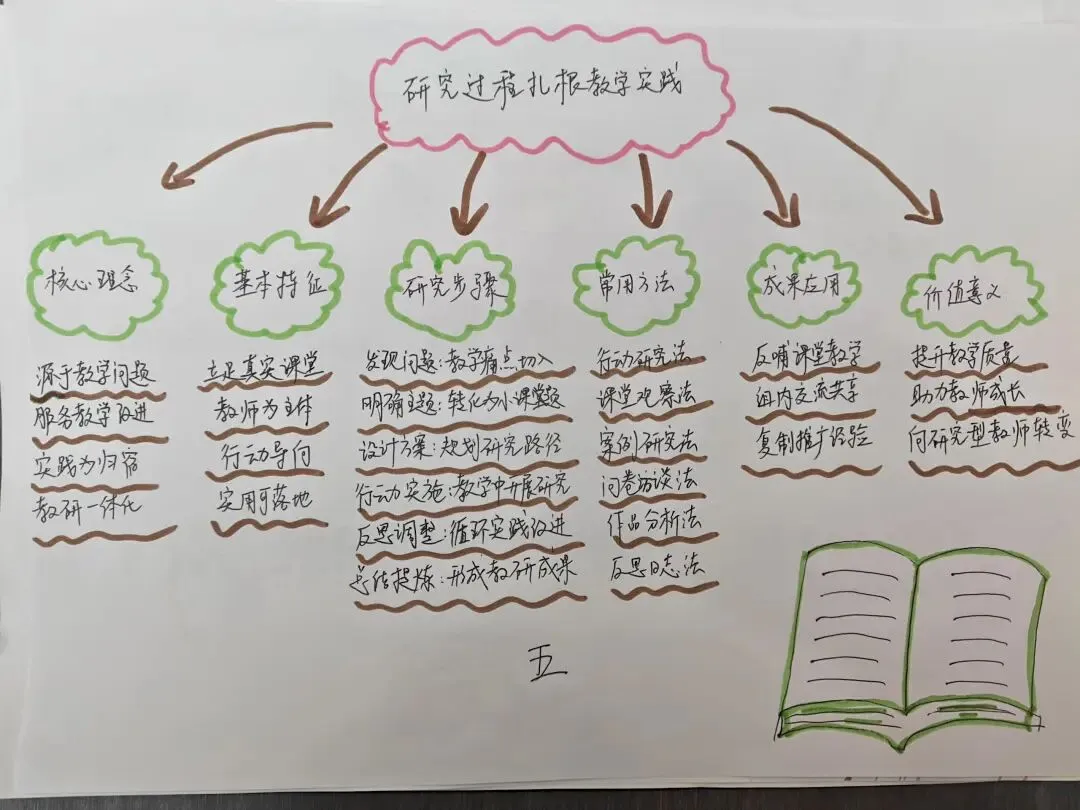 研究过程扎根教学实践
核心理念
源于教学问题
服务教学改进
实践为归宿
教研一体化
基本特征
立足真实课堂
教师为主体
行动导向
实用可落地
研究步骤
发现问题：教学痛点切入
明确主题：转化为小课题
设计方案：规划研究路径
行动实施：教学中开展研究
反思调整：循环实践改进
总结提炼：形成教研成果
常用方法
行动研究法
课堂观察法
案例研究法
问卷访谈法
作品分析法
反思日志法
成果应用
反哺课堂教学
组内交流共享
复制推广经验
价值意义
提升教学质量
助力教师成长
向研究型教师转变
五